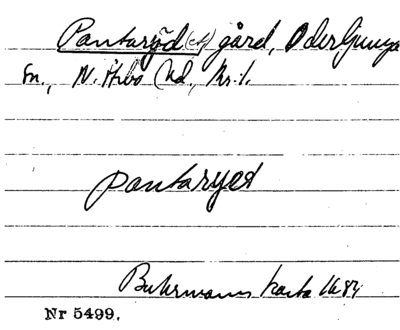 Pantaröd(et) gård, Oderljunga
sn., N. Åsbo hd, Kr. l.
pantaryed
Buhrmanns karta 1684
Nr 5499.